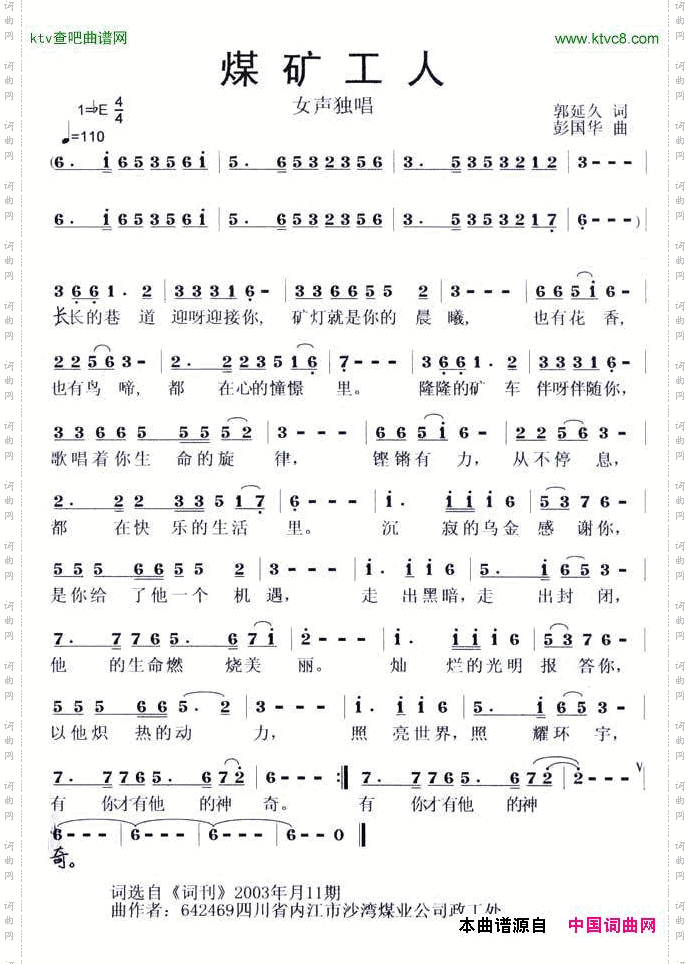 ktv查吧曲谱网 www.ktvc8.com
煤矿工人
女声独唱
1=♭E 4/4
♩=110
郭延久 词
彭国华 曲
(6. i 653561 | 5. 6532356 | 3. 5353212 | 3 - - -
6. i 653561 | 5. 6532356 | 3. 5353217 | 6 - - - )
3661. 2 | 33316 - | 3366655 53 - | 6651 6 -
长长的巷 道 迎呀迎接你, 矿灯就是你的 晨 曦, 也有花 香,
22563 - | 2. 2235 16 | 7 - - - | 3661. 2 | 33316 -
也有鸟 啼, 都 在心的憧憬 里。 隆隆的矿 车 伴呀伴随你,
33665 555 52 | 3 - - - | 6651 6 - | 22563 -
歌唱着你生 命的旋 律, 铿锵有 力, 从不停 息,
2. 22 335 217 | 6 - - - | i. iii6 | 5376 -
都 在快 乐的生活 里。 沉 寂的乌金 感 谢你,
555 6655 2 | 3 - - - | i. ii6 | 5. i653
是你给 了他一个 机 遇, 走 出黑暗, 走 出封 闭,
7. 7765. 67i | 2 - - - | i. iii6 | 5376 -
他 的生命燃 烧美 丽。 灿 烂的光明 报 答你,
555 665. 2 | 3 - - - | i. ii6 | 5. i653
以他炽 热的动 力, 照 亮世界, 照 耀环 宇,
7. 7765. 672 | 6 - - - :| 7. 7765. 672 | 2 - - -
有 你才有他 的神 奇。 有 你才有他 的神
6 - - - | 6 - - - | 6 - - - | 6 - - 0
奇。
词选自《词刊》2003年月11期
曲作者: 642469四川省内江市沙湾煤业公司政工处
本曲谱源自 中国词曲网